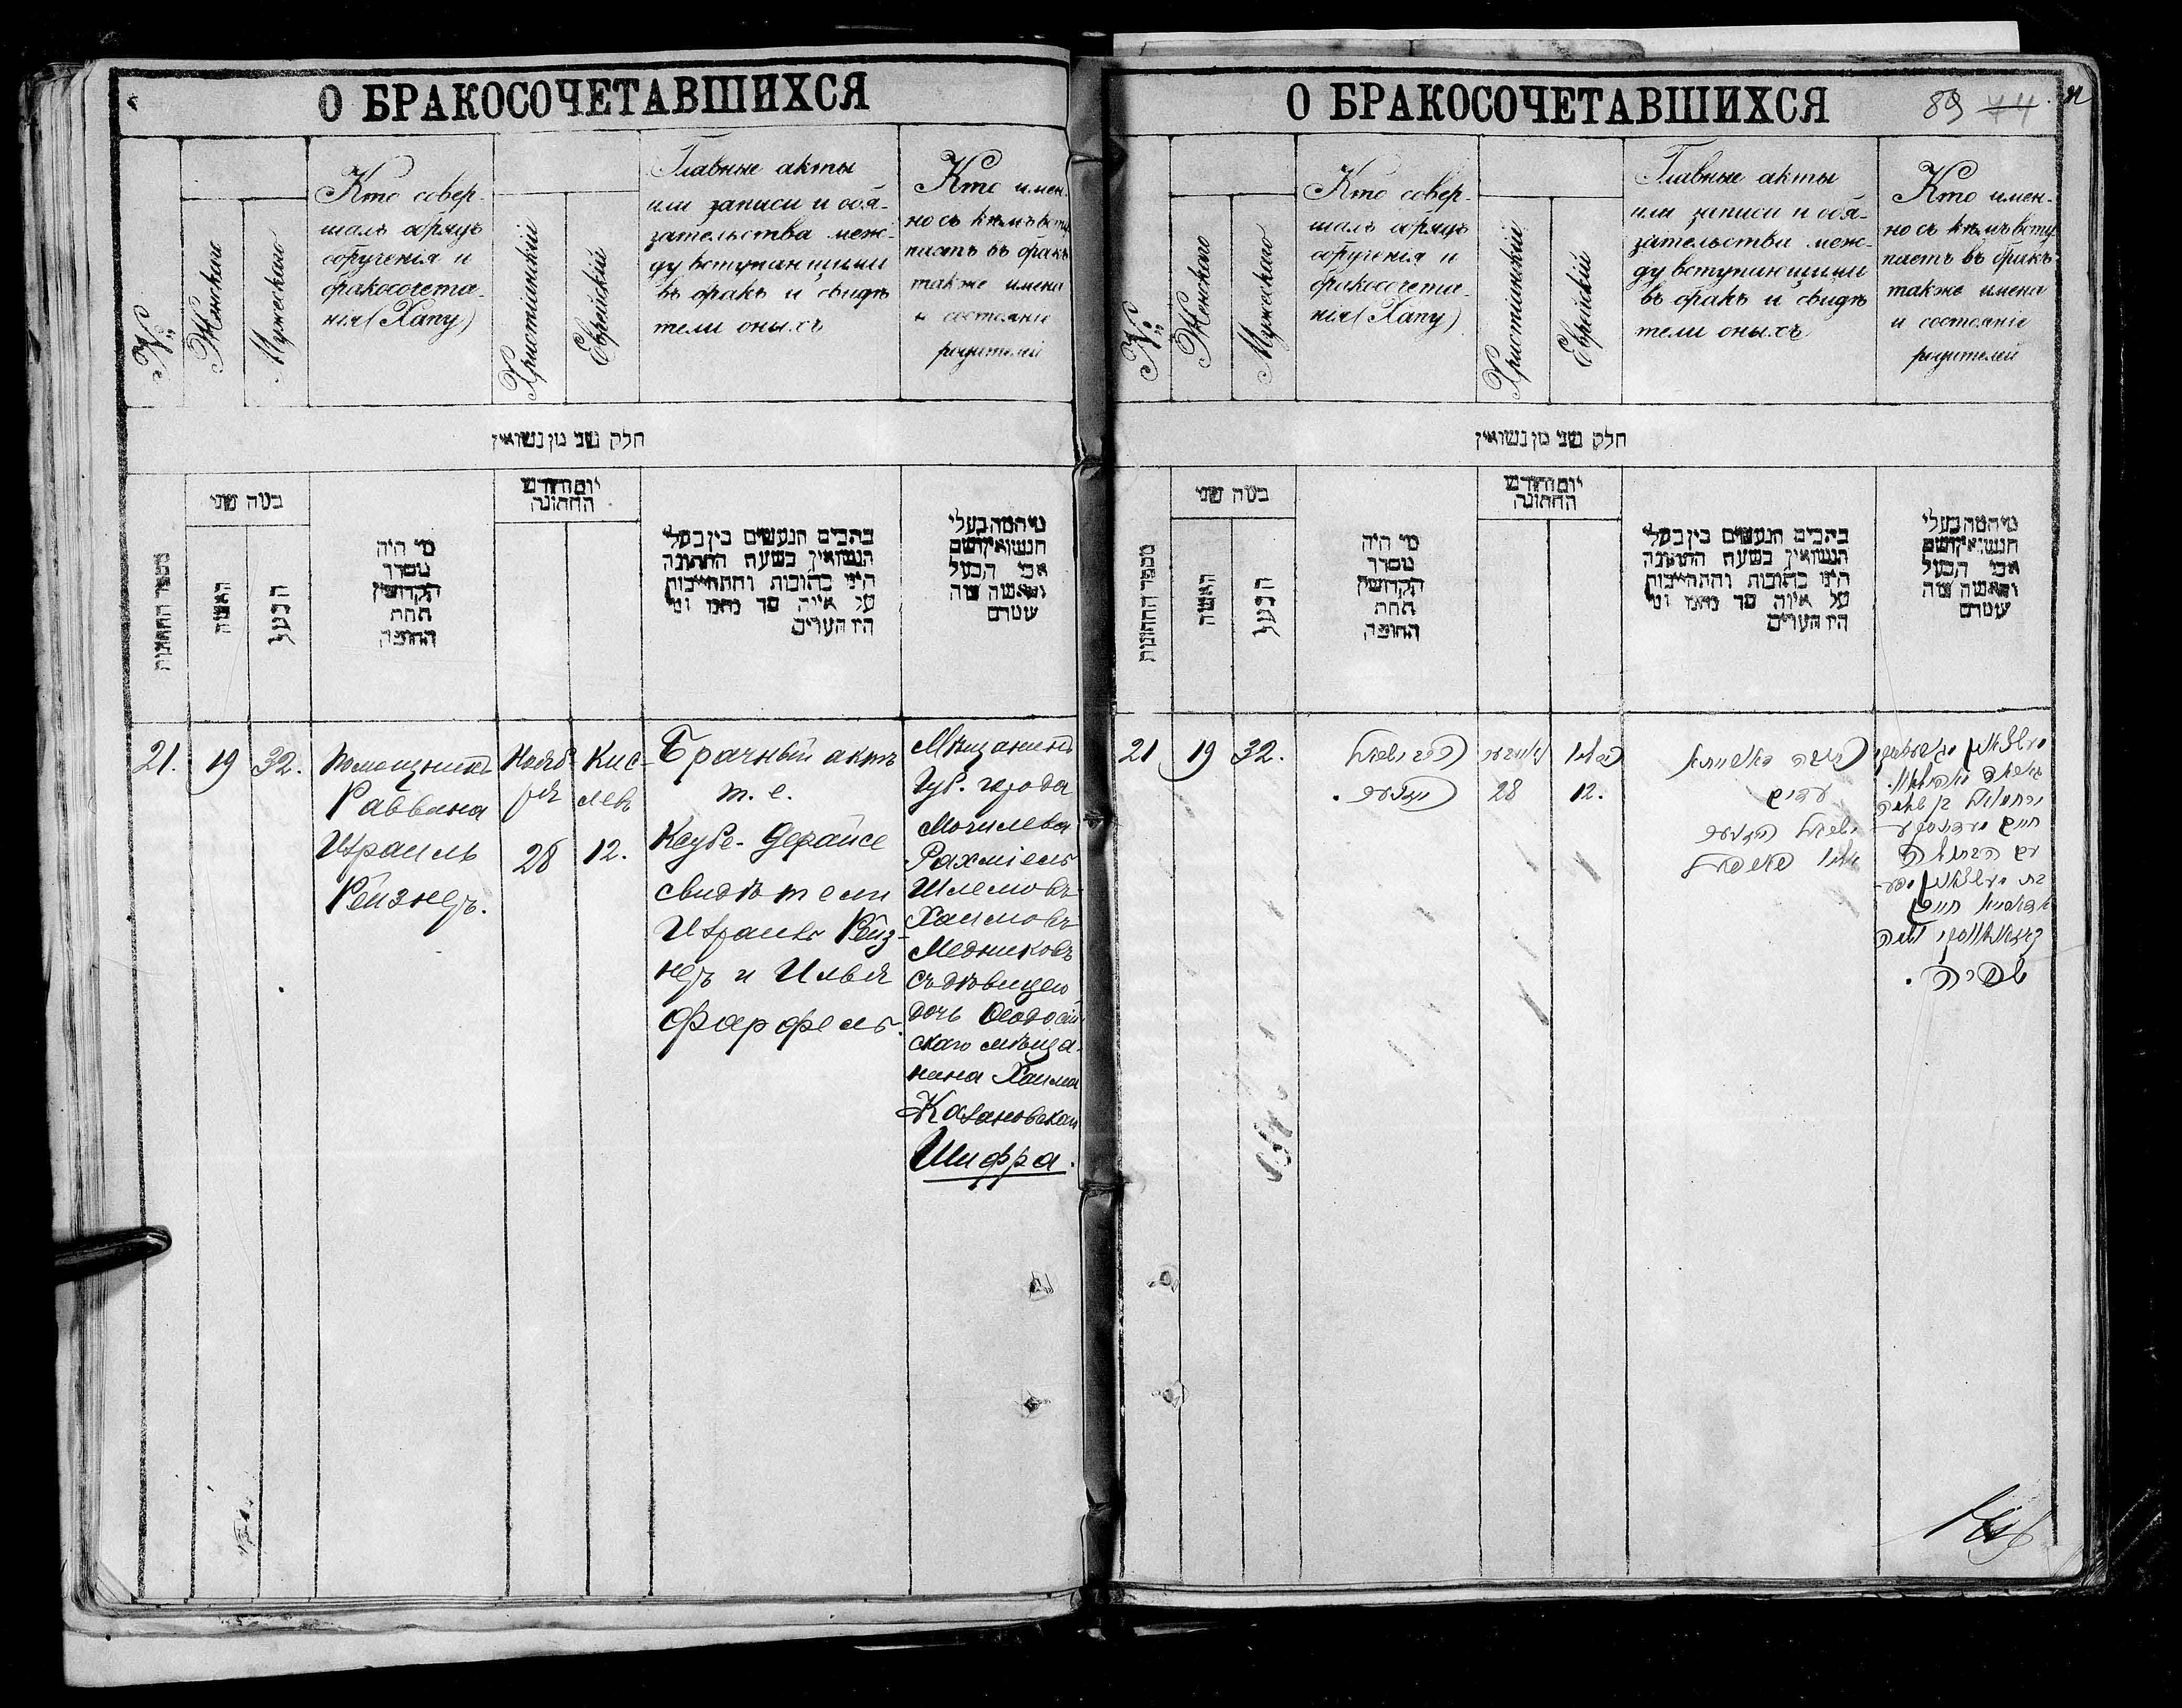 О БРАКОСОЧЕТАВШИХСЯ
№
Женскаго
Мужескаго
Кто совер-
шалъ обрядъ
обрученія и
бракосочета-
нія (Хапу)
Христіянскій
Еврейскій
Главные акты
или записи и обя-
зательства меж-
ду вступающими
въ бракъ и свидѣ
тели оныхъ
Кто имен-
но съ кѣмъ всту
паетъ въ бракъ
также имена
и состояніе
родителей
חלק שני מן נשואין
מספר החתונות
כמה שני
האשה
הבעל
מי היה
מסדר
הקדושין
תחת
החופה
יום וחודש
החתונה
כתבים הנעשים בין בעלי
הנשואין בשעת החתונה
היינו כתובות והתחייבות
על איזה סך נתנו ומי
היו העדים
מי המה בעלי
הנשואין ושם
אבי הבעל
והאשה מה
שמם
21.
19
32.
Помощникъ
Раввина
Израиль
Рейзнеръ.
Нояб-
ря
28
Кис-
левъ
12.
Брачный актъ
т. е.
Ксубе-Дерайсе
свидѣтели
Израиль Рейз-
неръ и Илья
Фарфель.
Мѣщанинъ
Губ. города
Могилева
Рахміель
Шлемовъ-
Хаимовъ
Медниковъ
съ дѣвицею
дочь Ѳеодосій
скаго мѣща-
нина Хаима
Казановская
Шифра.
О БРАКОСОЧЕТАВШИХСЯ
89 74
№
Женскаго
Мужескаго
Кто совер-
шалъ обрядъ
обрученія и
бракосочета-
нія (Хапу)
Христіянскій
Еврейскій
Главные акты
или записи и обя-
зательства меж-
ду вступающими
въ бракъ и свидѣ
тели оныхъ
Кто имен-
но съ кѣмъ всту
паетъ въ бракъ
также имена
и состояніе
родителей
חלק שני מן נשואין
מספר החתונות
כמה שני
האשה
הבעל
מי היה
מסדר
הקדושין
תחת
החופה
יום וחודש
החתונה
כתבים הנעשים בין בעלי
הנשואין בשעת החתונה
היינו כתובות והתחייבות
על איזה סך נתנו ומי
היו העדים
מי המה בעלי
הנשואין ושם
אבי הבעל
והאשה מה
שמם
21
19
32.
הרב ישראל
28
כסלו
12.
כתובה דאורייתא
עדים
ישראל
ירחמיאל בן שלמה
חיים
עם הבתולה
בת
חיים
שפרה.